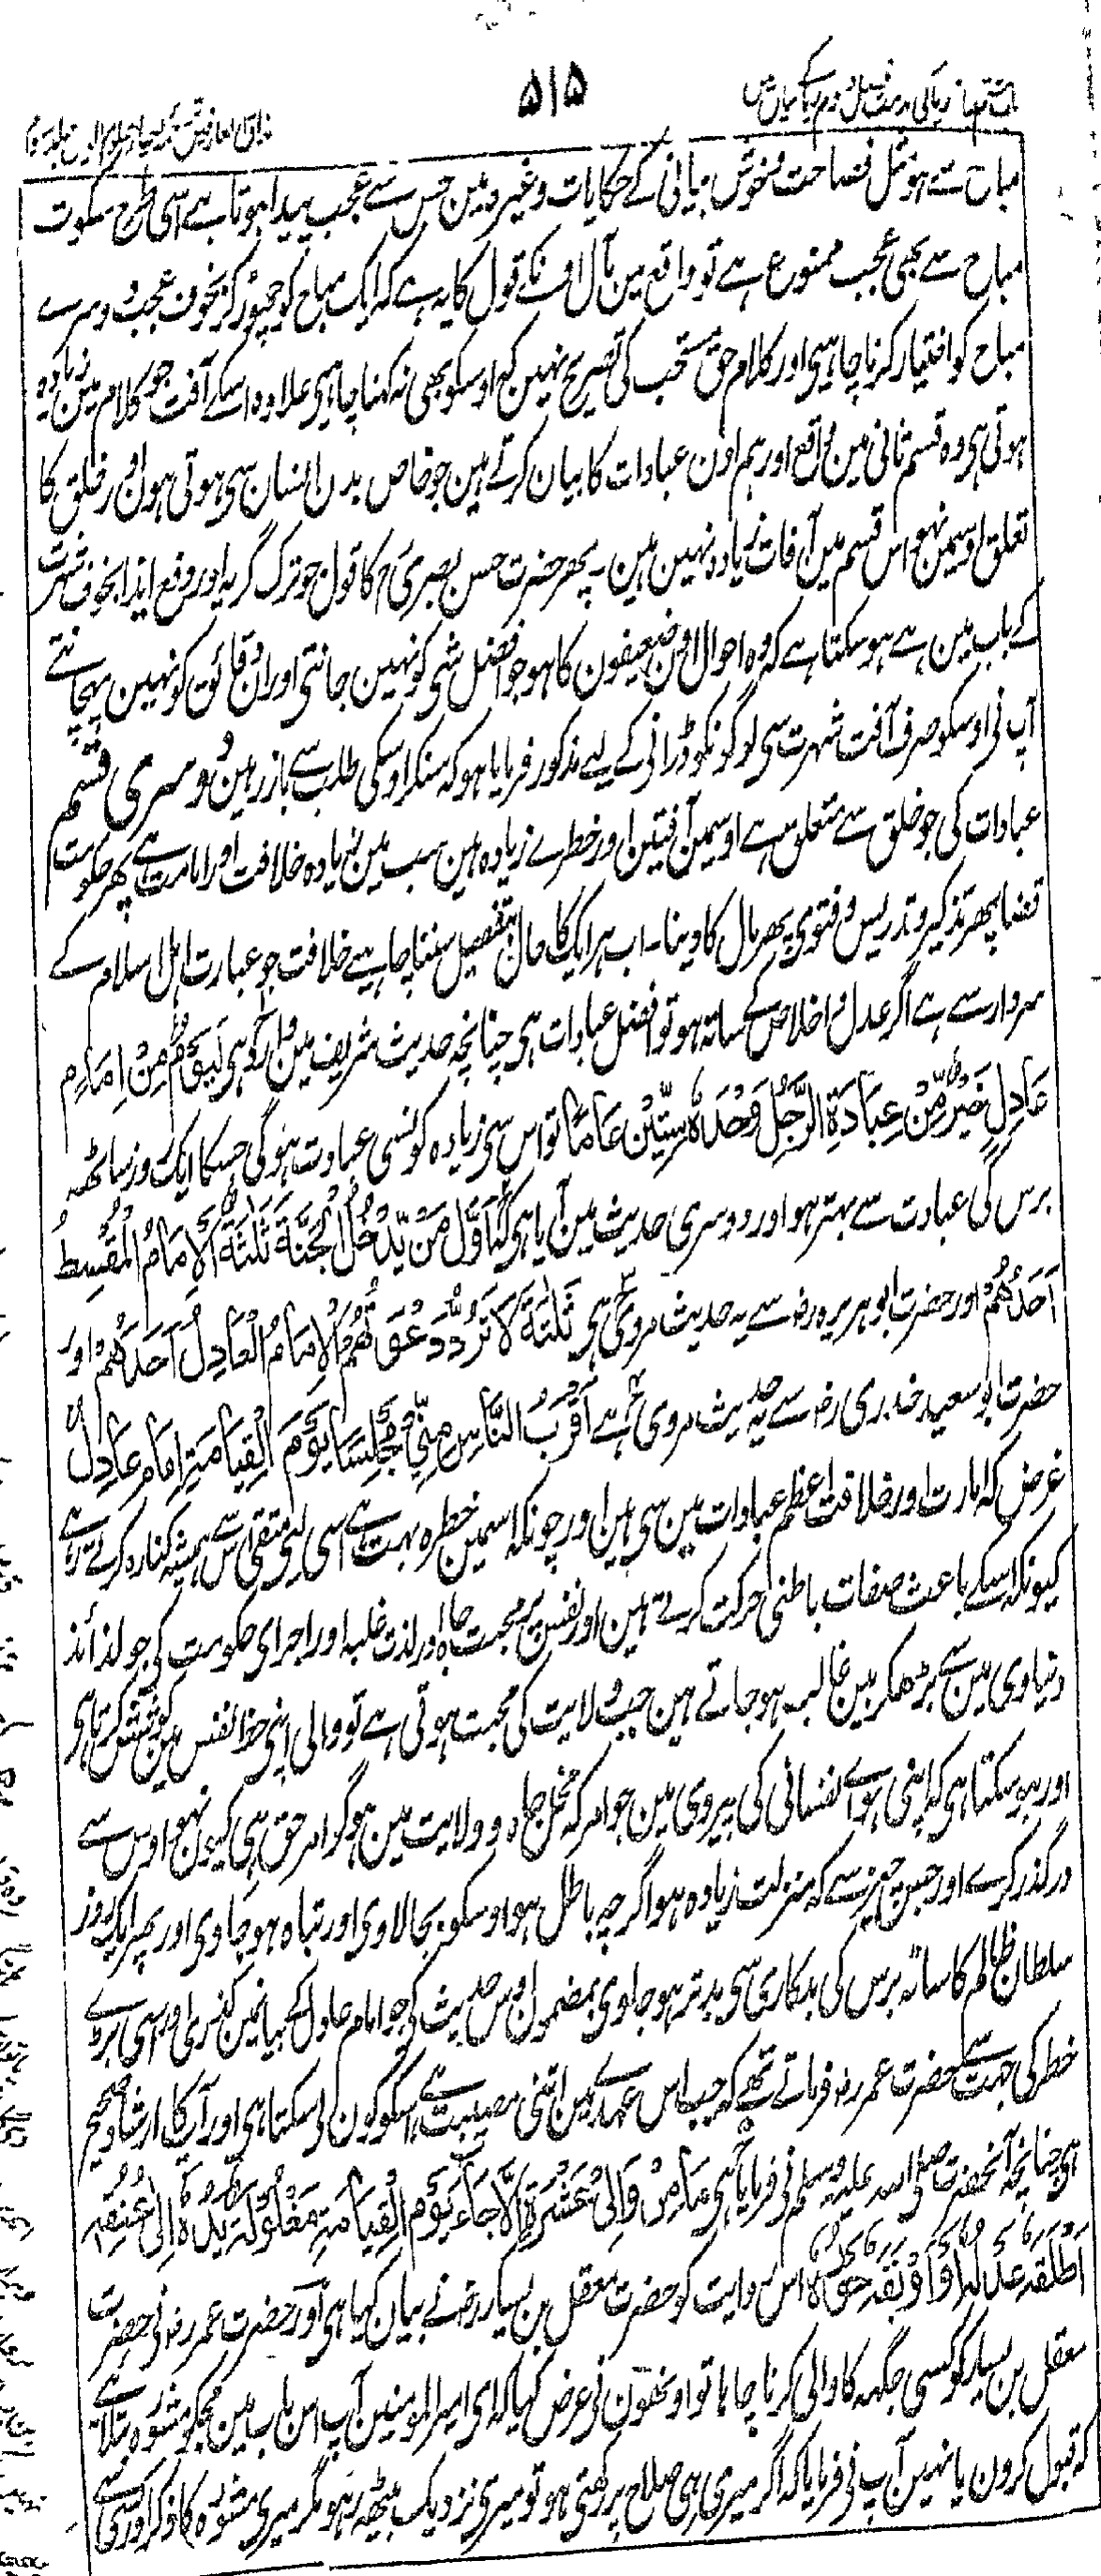 ۵۱۵
مباح سے ہو مثل فصاحت و خوش بیانی کے حکایات وغیرہ مین جس سے عجب پیدا ہوتا ہے اسی طرح سکوت
مباح سے بھی عجب ممنوع ہے تو واقع مین مآل اونکے قول کا یہ ہے کہ ایک مباح کو چھوڑ کر بخوف عجب دوسرے
مباح کو اختیار کرنا چاہیے اور کلام حق مستحب کی تصریح نہین کہ اوسکو بھی نہ کہنا چاہیے علاوہ اسکے آفت جو کلام مین زیادہ
ہوتی ہی وہ قسم ثانی مین واقع اور ہم اون عبادات کا بیان کرتے ہین جو خاص بدن انسان سی ہوتی ہون اور خلق کا
تعلق اوسمین نہو اس قسم مین آفات زیادہ نہین ہین ۔ پھر حضرت حسن بصری رح کا قول جو ترک گریہ اور دفع ایذا بخوف شہرت
کے باب مین ہے ہو سکتا ہے کہ وہ احوال اون ضعیفون کا ہو جو افضل شی کو نہین جانتی اور ان دقائق کو نہین پہچانتے
آپ نی اوسکو صرف آفت شہرت سی لوگونکو ڈرانی کے لیے مذکور فرمایا ہو کہ سنکر اوسکی طلب سے باز رہین دوسری قسم
عبادات کی جو خلق سے متعلق ہے اوسمین آفتین اور خطرے زیادہ ہین سب مین زیادہ خلافت اور امارت ہے پھر حکومت
قضا پھر تذکیر و تدریس و فتوی پھر مال کا دینا ۔ اب ہر ایک کا حال بتفصیل سننا چاہیے خلافت جو عبارت اہل اسلام کے
سردار سے ہے اگر عدل و اخلاص کے ساتھ ہو تو افضل عبادات ہی چنانچہ حدیث شریف مین مذکور ہی لَیَوْمٌ مِنْ اِمَامٍ
عَادِلٍ خَیْرٌ مِّنْ عِبَادَةِ الرَّجُلِ وَحْدَہٗ سِتِّیْنَ عَامًا تو اس سی زیادہ کونسی عبادت ہوگی جسکا ایک روز ساٹھ
برس کی عبادت سے بہتر ہو اور دوسری حدیث مین آیا ہی کہ اَوَّلُ مَنْ یَّدْخُلُ الْجَنَّةَ ثَلٰثَةٌ اَلْاِمَامُ الْمُقْسِطُ
اَحَدُهُمْ اور حضرت ابو ہریرہ رضہ سے یہ حدیث مروی ہی ثَلٰثَةٌ لَا تُرَدُّ دَعْوَتُهُمْ اَلْاِمَامُ الْعَادِلُ اَحَدُهُمْ اور
حضرت ابو سعید خدری رضہ سے یہ حدیث مروی ہے اَقْرَبُ النَّاسِ مِنِّیْ مَجْلِسًا یَوْمَ الْقِیَامَةِ اِمَامٌ عَادِلٌ
غرض کہ امارت اور خلافت اعظم عبادات مین سی ہین اور چونکہ اسمین خطرہ بہت ہے اسی لئی متقی اس سے ہمیشہ کنارہ کرتے رہے
کیونکہ اسکے باعث صفات باطنی حرکت کرتے ہین اور نفس پر محبت جاہ اور لذت غلبہ اور اجرای حکومت کی جو لذائذ
دنیاوی مین سب بڑھکر ہین غالب ہو جاتے ہین جب ولایت کی محبت ہوتی ہے تو والی اپنی حظ نفس مین کوشش کرتا ہی
اور ہو سکتا ہی کہ اپنی ہوائے نفسانی کی پیروی مین جو امر کہ مخل جاہ و ولایت مین ہو گو امر حق ہی کیون نہو اوس سے
درگذر کرے اور جس چیز سے کہ منزلت زیادہ ہو اگرچہ باطل ہو اوسکو بجا لاوی اور تباہ ہو جاوی اور پھر ایک روز
سلطان ظالم کا ساٹھ برس کی بدکاری سی بدتر ہو جاوی بمضمون اوس حدیث کی جو امام عادل کے بیان مین گذری اور اسی بڑے
خطر کی جہت سے حضرت عمر رضہ فرماتے تھے کہ جب اس عہدے مین اتنی مصیبت ہے اسکو کون لے سکتا ہی اور آپکا ارشاد صحیح
ہی چنانچہ آنحضرت صلی اللہ علیہ وسلم نی فرمایا ہی مَا مِنْ وَالِیْ عَشَرَةٍ اِلَّا جَاءَ یَوْمَ الْقِیَامَةِ مَغْلُوْلَةً یَدُہٗ اِلٰی عُنُقِہٖ
اَطْلَقَہٗ عَدْلُہٗ اَوْ اَوْبَقَہٗ جَوْرُہٗ اس روایت کو حضرت معقل بن یسار رضہ نے بیان کیا ہی اور حضرت عمر رضہ نی حضرت
معقل بن یسار کو کسی جگہہ کا والی کرنا چاہا تو اونھون نی عرض کیا کہ ای امیر المومنین آپ اس باب مین مجکو مشورہ بتلائیے
کہ قبول کرون یا نہین آپ نی فرمایا کہ اگر میری ہی صلاح پر رکھتی ہو تو میری نزدیک بیٹھ رہو مگر میری مشورہ کا ذکر اور کسی سے